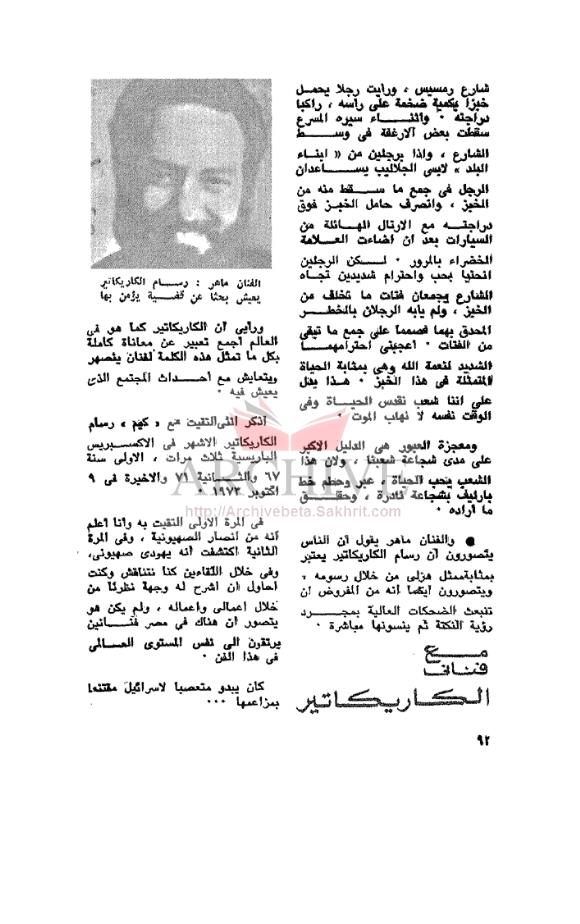 شارع رمسيس ، ورايت رجلا يحمـل
خبزا بكمية ضخمة على راسه ، راكبا
دراجته · واثنـــاء سيره المسرع
سقطت بعض الارغفة فى وســـط
الشارع ، واذا برجلين من « ابناء
البلد » لابسى الجلاليب يســـاعدان
الرجل فى جمع ما ســـقط منه من
الخبز ، وانصرف حامل الخبـز فوق
دراجتــه مع الارتال الهـــائلة من
السيارات بعد ان اضاءت العـلامة
الخضراء بالمرور · لـــكن الرجلين
انحنيا بحب واحترام شديدين تجاه
الشارع يجمعان فتات ما تخلف من
الخبز ، ولم يابه الرجلان بالخطــر
المحدق بهما فصمما على جمع ما تبقى
من الفتات · اعجبنى احترامهمـــا
الشديد لنعمة الله وهى بمثابة الحياة
المتمثلة فى هذا الخبز · هـذا يدل
على اننا شعب نقدس الحيــاة وفى
الوقت نفسه لا نهاب الموت ·
ومعجزة العبور هى الدليل الاكبر
على مدى شجاعة شعبنا ، ولان هذا
الشعب يحب الحياة ، عبر وحطم خط
بارليف بشجاعة نادرة ، وحقـــق
ما اراده ·
● والفنان ماهر يقول أن الناس
يتصورون أن رسام الكاريكاتير يعتبر
بمثابة ممثل هزلى من خلال رسومه ،
ويتصورون أيضا انه من المفروض ان
تنبعث الضحكات العالية بمجـــرد
رؤية النكتة ثم ينسونها مباشرة ·
مـــع
فنـان
الـكـاريـكـاتير
الفنان ماهر : رســـام الكاريكاتير
يعيش بحثا عن قضــية يؤمن بها
ورأيى أن الكاريكاتير كما هو فى
العالم أجمع تعبير عن معاناة كاملة
بكل ما تمثل هذه الكلمة لفنان ينصهر
ويتعايش مع أحــداث المجتمع الذى
يعيش فيه ·
اذكر اننى التقيت مع « كهم » رسام
الكاريكاتير الاشهر فى الاكســبريس
الباريسية ثلاث مرات ، الاولى سنة
٦٧ والثــانية ٧١ والاخيرة فى ٩
اكتوبر ١٩٧٣ ·
فى المرة الاولى التقيت به وانا اعلم
أنه من أنصار الصهيونية ، وفى المرة
الثانية اكتشفت أنه يهودى صهيونى،
وفى خلال اللقاءين كنا نتناقش وكنت
أحاول أن اشرح له وجهة نظرنا من
خلال اعمالى واعماله ، ولم يكن هو
يتصور أن هناك فى مصر فنــانين
يرتقون الى نفس المستوى العــالى
فى هذا الفن ·
كان يبدو متعصبا لاسرائيل مقتنعا
بمزاعمها ···
٩٢
ARCHIVE
http://Archivebeta.Sakhrit.com